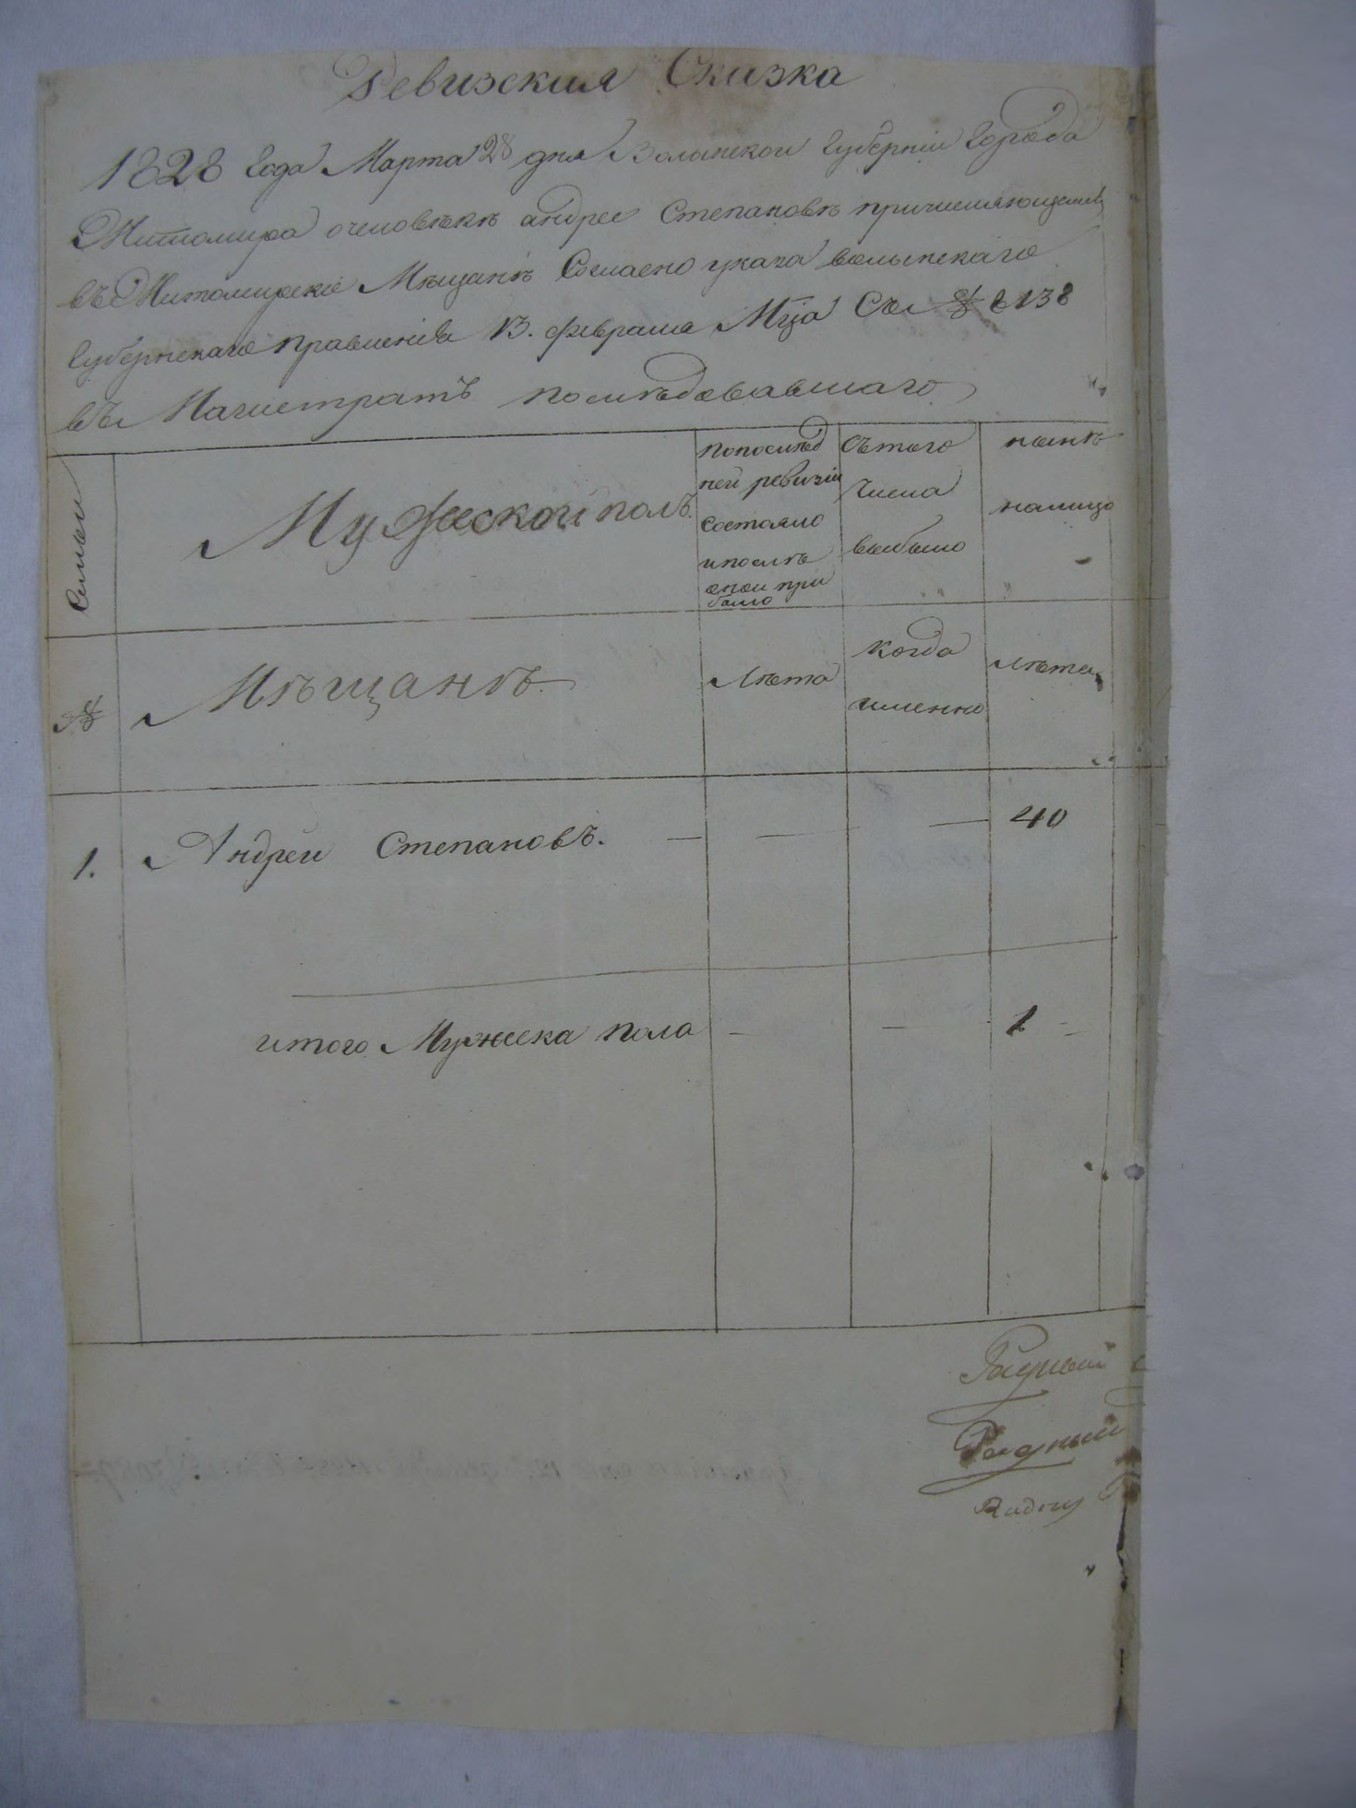 Ревизския Сказка
1828 Года Марта 28 дня Волынской Губернии Города
Житомира очеловѣкѣ андрее Степановѣ причисляющемся
въ Житомирскіе Мѣщанѣ Согласно указа волынскаго
Губернскаго правленія 13. февраля Мца Съ № 8138
въ Магистратъ последовавшаго
Семьи
Мужеской полъ.
попослѣд
ней ревизіи
состояло
ипослѣ
оной при
было
Съ того
Числа
выбыло
нынѣ
налицо
№
Мѣщанѣ.
Лѣта
когда
именно
Лѣта
1. Андрей Степановъ. — — — 40
итого Мужеска пола — — 1
Ратный
Ратный
Radny